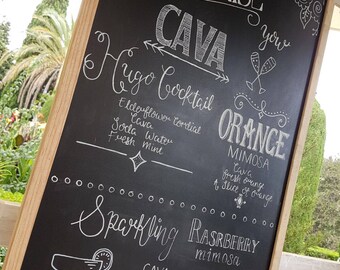 you
CAVA
Hugo Cocktail
Elderflower Cordial
Cava
Soda Water
Fresh Mint
ORANGE
MIMOSA
Cava
Fresh orange
Slice of orange
Sparkling
RASPBERRY
mimosa
CAVA